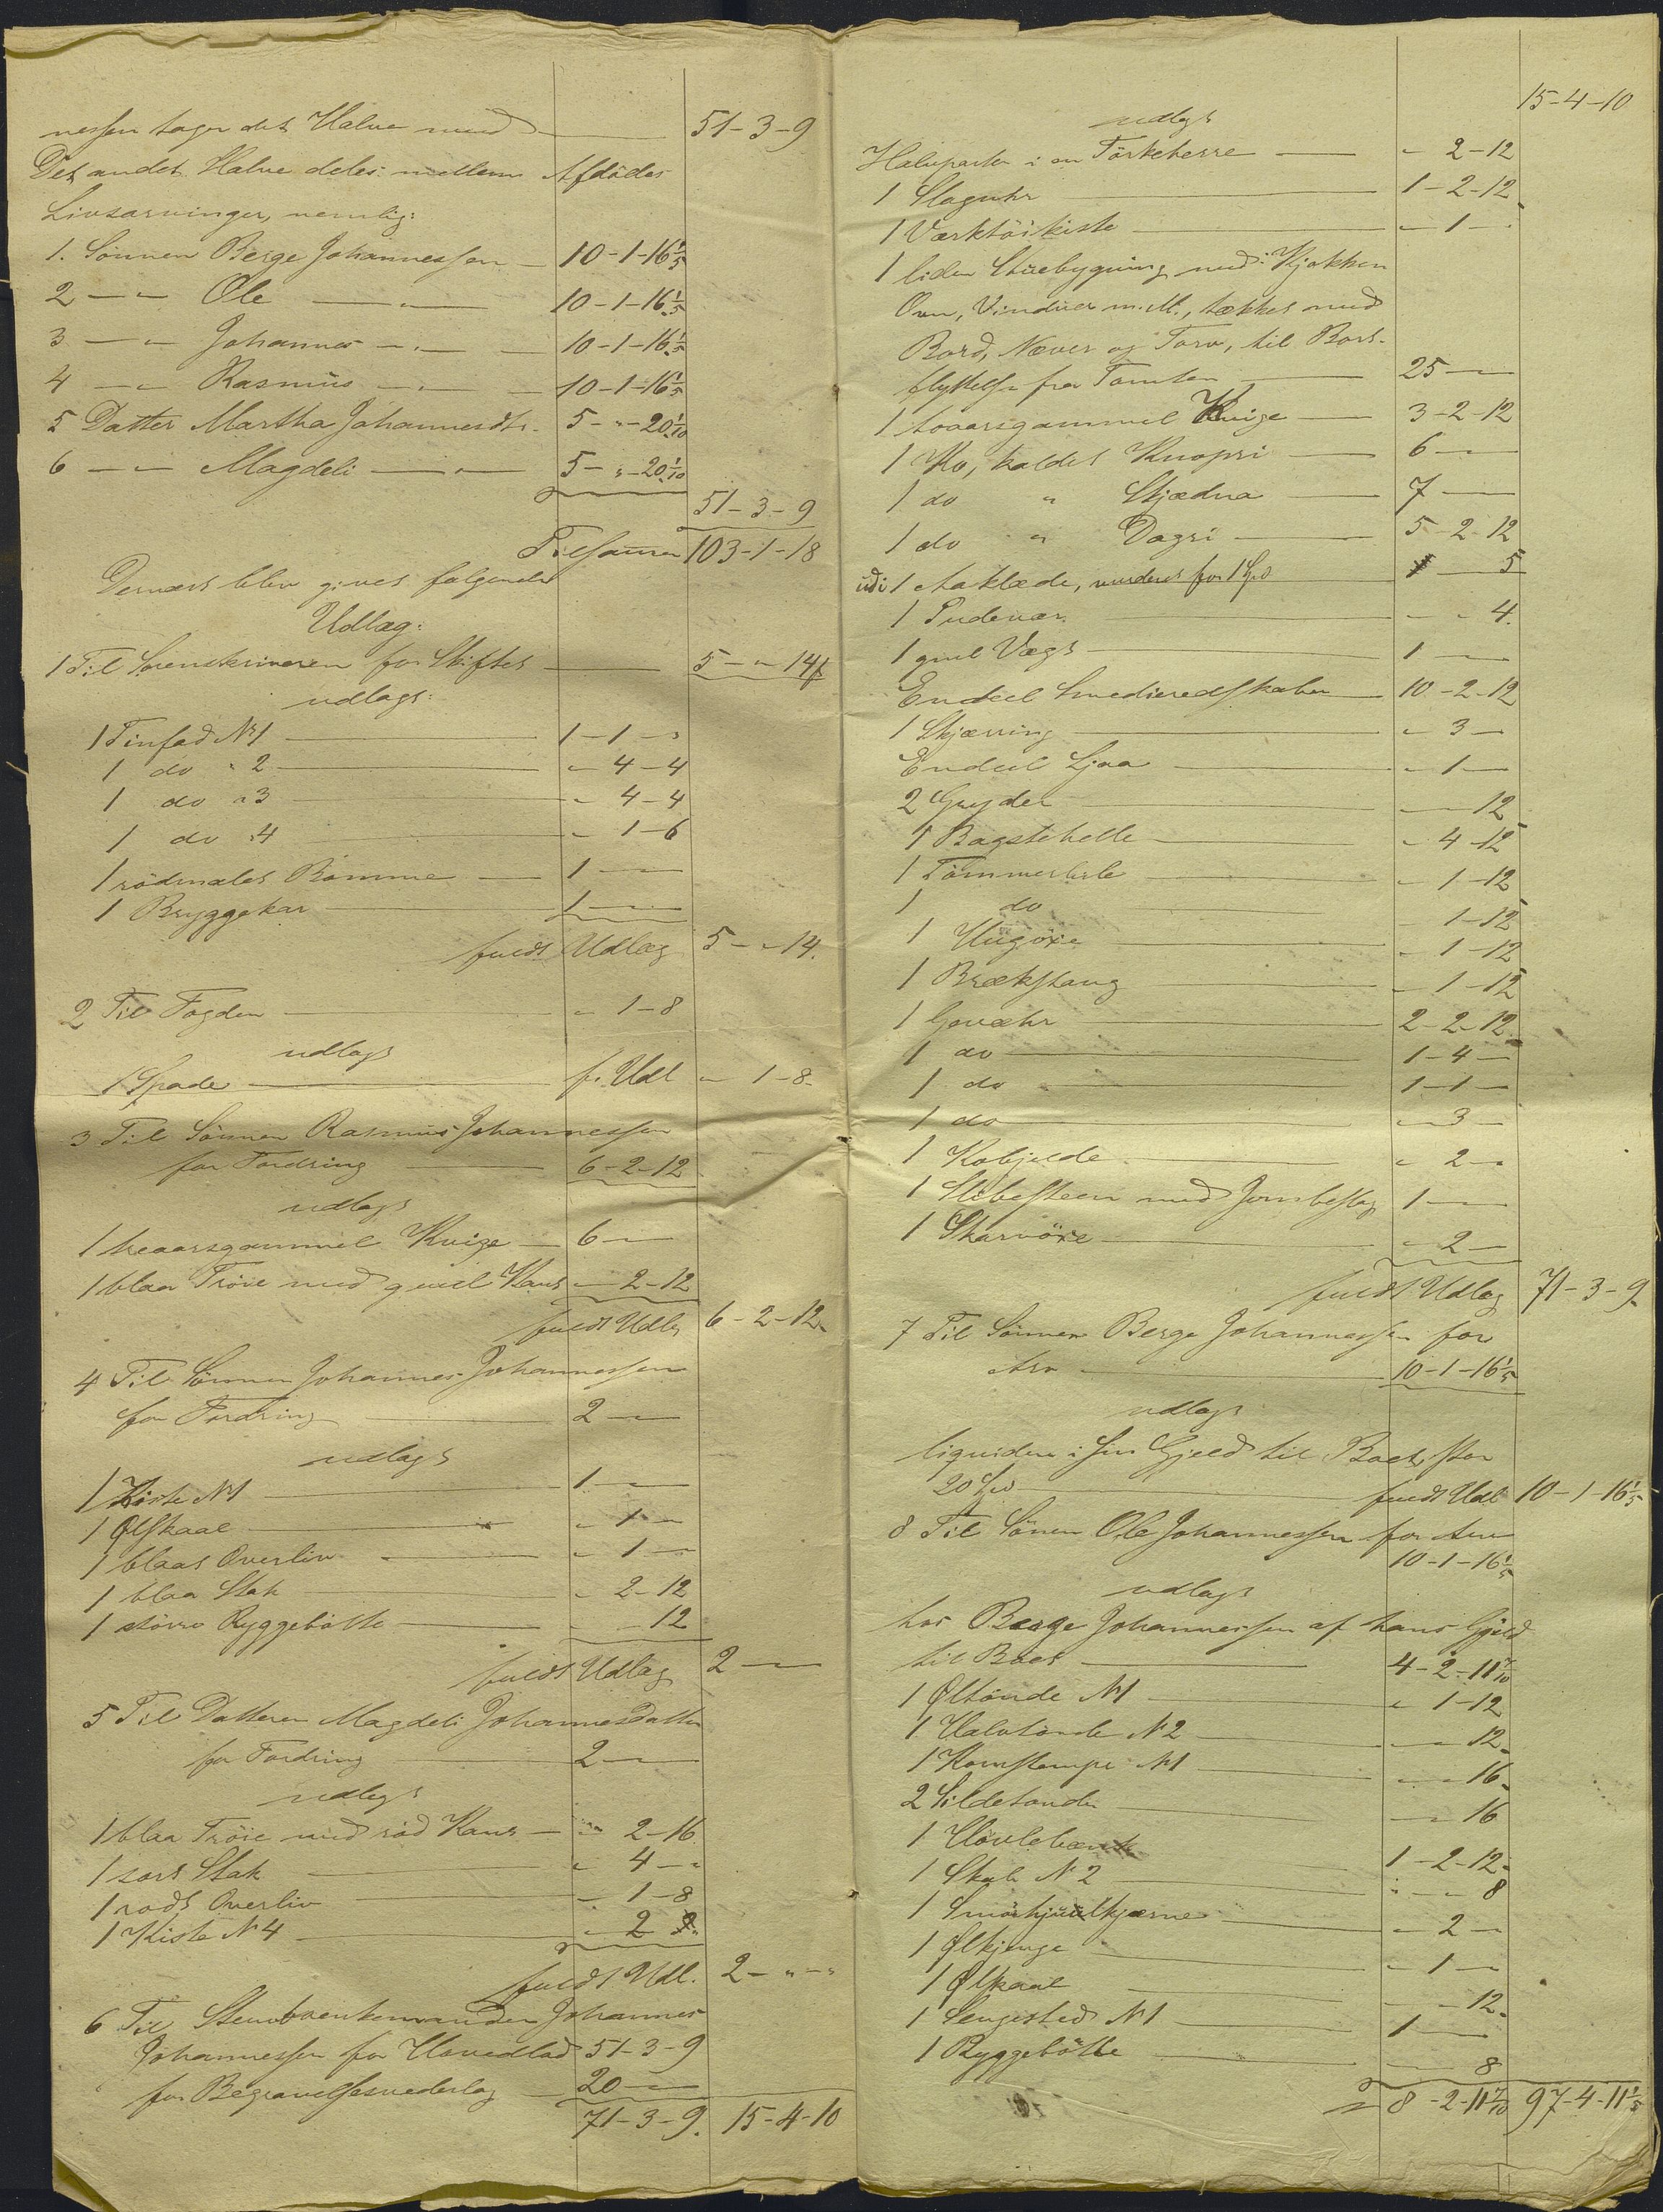 nessen tager det Halve med — 51-3-9
Det andet Halve deles mellem Afdødes
Livsarvinger, nemlig:
1. Sönnen Berge Johannessen — 10-1-16 1/5
2 — " — Ole — " — 10-1-16 1/5
3 — " — Johannes — " — 10-1-16 1/5
4 — " — Rasmus — " — 10-1-16 1/5
5 Datter Martha Johannesdtr. 5-"-20 1/10
6 — " — Magdeli — " — 5-"-20 1/10
51-3-9
Tilsamen 103-1-18
Dernæst blev givet følgende
Udlæg:
1 Til Sorenskriveren for Skiftet — 5-"-14
udlagt:
1 Tinfad No 1 — 1-1-"
1 do " 2 — "-4-4
1 do " 3 — "-4-4
1 do " 4 — "-1-6
1 rödmalet Bomme — 1 —
1 Bryggekar — 1 —
fuldt Udlæg 5-"-14.
2 Til Fogden — "-1-8
udlagt
1 Spade — f. Udl "-1-8.
3 Til Sönnen Rasmus Johannessen
for Fordring — 6-2-12
udlagt
1 treaarsgammel Kvige — 6 —
1 blaa Tröie med gueel Kant "-2-12
fuldt Udlg 6-2-12.
4 Til Sönnen Johannes Johannessen
for Fordring — 2 —
udlagt
1 Kiste No 1 — 1 —
1 Ølskaal — "-1-"
1 blaat Overliv — "-1 —
1 blaa Stak — "-2-12
1 större Ryggebötte — " - 12
fuldt Udlæg 2 —
5 Til Datteren Magdeli Johannesdatter
for Fordring — 2 —
udlagt
1 blaa Tröie med röd Kant — "-2-16
1 sort Stak — "-4-"
1 rödt Overliv — "-1-8
1 Kiste No 4 — "-2
fuldt Udl. 2-"-"
6 Til Stervboenkemanden Johannes
Johannessen for Hovedlod 51-3-9
for Begravelsesvederlag — 20 —
71-3-9. 15-4-10
15-4-10
udlagt
Halvparten i en Törkehesre — "-2-12
1 Slaguhr — 1-2-12
1 Værktöikiste — "-1-"
1 liden Stuebygning med Kjøkken
Ovn, Vinduer m. M., tækket med
Bord, Næver og Torv, til Bort-
flyttelse fra Tomten — 25 —
1 toaarsgammel Kvige — 3-2-12
1 Ko, kaldet Knopri — 6 —
1 do " Skjædna — 7 —
1 do " Dagri — 5-2-12
udi 1 Aaklæde, vurderet for 1 Spd — 5
1 Pudevar — "-"-4.
1 gml Vægt — 1 —
Endeel Smedieredskaber — 10-2-12
1 Skjæring — "-3 —
Endeel Ljaa — "-1 —
2 Gryder — " - 12
1 Bagstehelle — "-4-12
1 Tömmerbile — "-1-12
1 do — 1-12
1 Hugöxe — "-1-12
1 Brækstang — "-1-12
1 Gevæhr — 2-2-12
1 do — 1-4 —
1 do — 1-1 —
1 do — "-3 —
1 Kobjelde — "-2-"
1 Slibesteen med Jernbeslag 1 —
1 Skarvöxe — "-2 —
fuldt Udlæg 71-3-9.
7 Til Sönnen Berge Johannessen for
Arv — 10-1-16 1/5
udlagt
liquideres i sin Gjeld til Boet, stor
20 Spd — fuldt Udl 10-1-16 1/5
8 Til Sönnen Ole Johannessen for Arv
10-1-16 1/5
udlagt
hos Berge Johannessen af hans Gjeld
til Boet — 4-2-11 7/10
1 Øltönde No 1 — "-1-12
1 Halvtönde No 2 — " - 12
1 Kornstampe No 1 — "-"-16
2 Sildetönder — " - 16
1 Hövlebænk — 1-2-12
1 Skab No 2 — "-"-8
1 Smörhjuulkjærne — "-2 —
1 Ølkjenge — "-1 —
1 Ølskaal — " - 12
1 Sengested No 1 — 1 —
1 Ryggebötte — 8
8-2-11 7/10 97-4-11 1/5